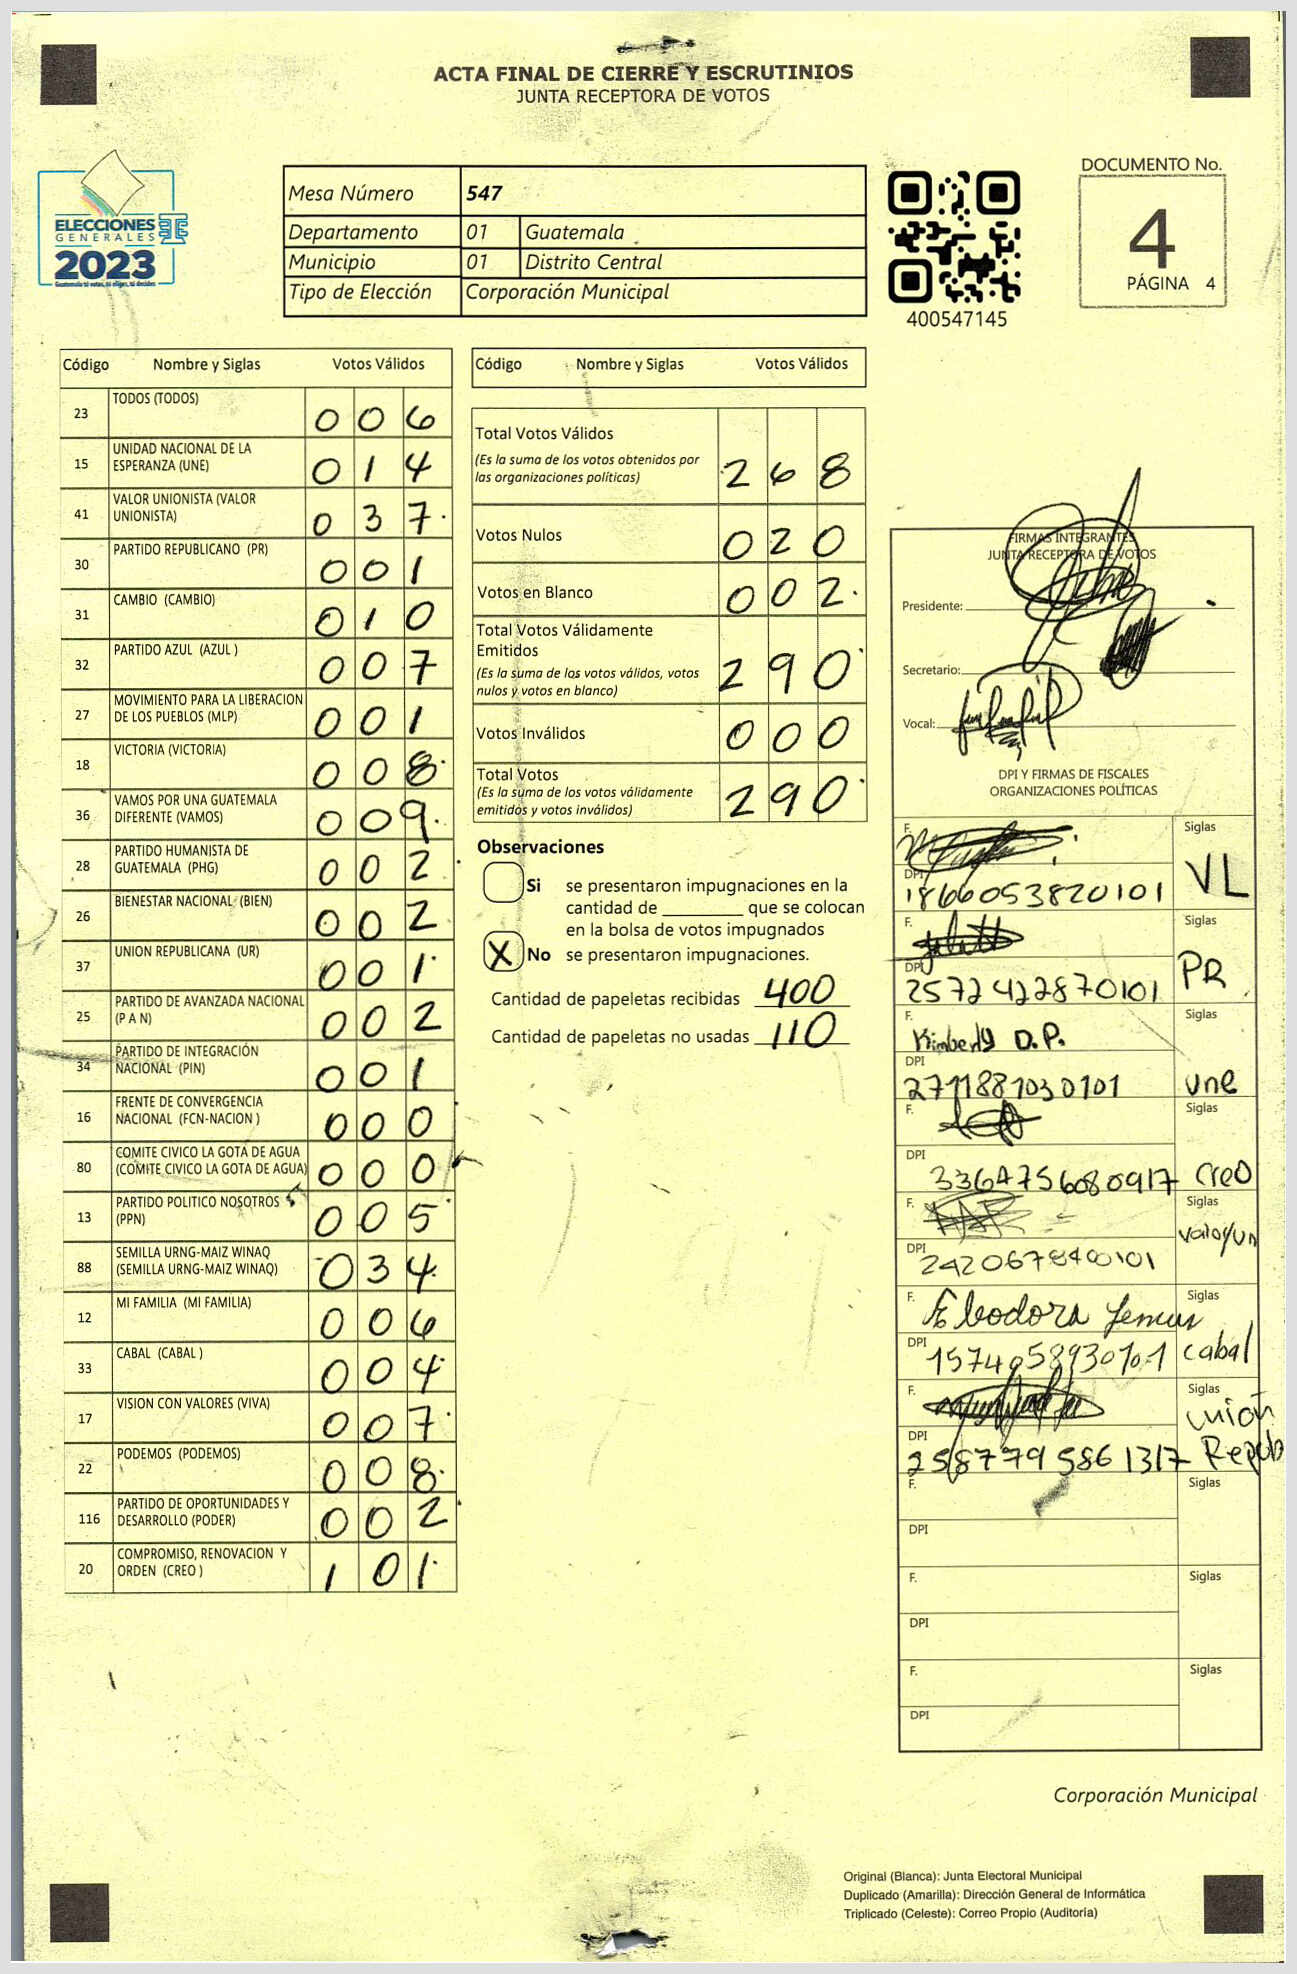 ACTA FINAL DE CIERRE Y ESCRUTINIOS
JUNTA RECEPTORA DE VOTOS
ELECCIONES
GENERALES
2023
Guatemala tú votas, tú eliges, tú decides
Mesa Número 547
Departamento 01 Guatemala
Municipio 01 Distrito Central
Tipo de Elección Corporación Municipal
400547145
DOCUMENTO No.
4
PÁGINA 4
Código Nombre y Siglas Votos Válidos
23 TODOS (TODOS) 006
15 UNIDAD NACIONAL DE LA ESPERANZA (UNE) 014
41 VALOR UNIONISTA (VALOR UNIONISTA) 037
30 PARTIDO REPUBLICANO (PR) 001
31 CAMBIO (CAMBIO) 010
32 PARTIDO AZUL (AZUL ) 007
27 MOVIMIENTO PARA LA LIBERACION DE LOS PUEBLOS (MLP) 001
18 VICTORIA (VICTORIA) 008
36 VAMOS POR UNA GUATEMALA DIFERENTE (VAMOS) 009
28 PARTIDO HUMANISTA DE GUATEMALA (PHG) 002
26 BIENESTAR NACIONAL (BIEN) 002
37 UNION REPUBLICANA (UR) 001
25 PARTIDO DE AVANZADA NACIONAL (P A N) 002
34 PARTIDO DE INTEGRACIÓN NACIONAL (PIN) 001
16 FRENTE DE CONVERGENCIA NACIONAL (FCN-NACION ) 000
80 COMITE CIVICO LA GOTA DE AGUA (COMITE CIVICO LA GOTA DE AGUA) 000
13 PARTIDO POLITICO NOSOTROS (PPN) 005
88 SEMILLA URNG-MAIZ WINAQ (SEMILLA URNG-MAIZ WINAQ) 034
12 MI FAMILIA (MI FAMILIA) 006
33 CABAL (CABAL ) 004
17 VISION CON VALORES (VIVA) 007
22 PODEMOS (PODEMOS) 008
116 PARTIDO DE OPORTUNIDADES Y DESARROLLO (PODER) 002
20 COMPROMISO, RENOVACION Y ORDEN (CREO ) 101
Código Nombre y Siglas Votos Válidos
Total Votos Válidos 268
(Es la suma de los votos obtenidos por
las organizaciones políticas)
Votos Nulos 020
Votos en Blanco 002
Total Votos Válidamente
Emitidos 290
(Es la suma de los votos válidos, votos
nulos y votos en blanco)
Votos Inválidos 000
Total Votos 290
(Es la suma de los votos válidamente
emitidos y votos inválidos)
Observaciones
Si se presentaron impugnaciones en la
cantidad de ________ que se colocan
en la bolsa de votos impugnados
X No se presentaron impugnaciones.
Cantidad de papeletas recibidas 400
Cantidad de papeletas no usadas 110
FIRMAS INTEGRANTES
JUNTA RECEPTORA DE VOTOS
Presidente:
Secretario:
Vocal:
DPI Y FIRMAS DE FISCALES
ORGANIZACIONES POLÍTICAS
F. Siglas
DPI 1866053820101 VL
F. Siglas
DPI 2572422870101 PR
F. Kimberly D.P. Siglas
DPI 2711881030101 une
F. Siglas
DPI 3364756080917 Creo
F. Siglas
DPI 2420678400101
F. Siglas
DPI cabal
F. Siglas
DPI 2587795861317 unión Repub
F. Siglas
DPI
F. Siglas
DPI
F. Siglas
DPI
Corporación Municipal
Original (Blanca): Junta Electoral Municipal
Duplicado (Amarilla): Dirección General de Informática
Triplicado (Celeste): Correo Propio (Auditoría)